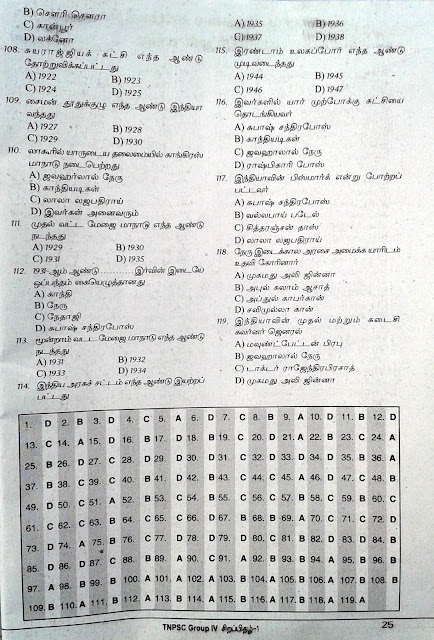 B) சௌரி சௌரா
C) கான்பூர்
D) லக்னோ
108. சுயராஜ்ஜியக் கட்சி எந்த ஆண்டு
தோற்றுவிக்கப்பட்டது
A) 1922 B) 1923
C) 1924 D) 1925
109. சைமன் தூதுக்குழு எந்த ஆண்டு இந்தியா
வந்தது
A) 1927 B) 1928
C) 1929 D) 1930
110. லாகூரில் யாருடைய தலைமையில் காங்கிரஸ்
மாநாடு நடைபெற்றது
A) ஜவஹர்லால் நேரு
B) காந்தியடிகள்
C) லாலா லஜபதிராய்
D) இவர்கள் அனைவரும்
111. முதல் வட்ட மேஜை மாநாடு எந்த ஆண்டு
நடந்தது
A) 1929 B) 1930
C) 1931 D) 1935
112. 1931-ஆம் ஆண்டு .......... இர்வின் இடையே
ஒப்பந்தம் கையெழுத்தானது
A) காந்தி
B) நேரு
C) நேதாஜி
D) சுபாஷ் சந்திரபோஸ்
113. மூன்றாம் வட்ட மேஜை மாநாடு எந்த ஆண்டு
நடந்தது
A) 1931 B) 1932
C) 1933 D) 1934
114. இந்திய அரசுச் சட்டம் எந்த ஆண்டு இயற்றப்
பட்டது
A) 1935 B) 1936
C) 1937 D) 1938
115. இரண்டாம் உலகப்போர் எந்த ஆண்டு
முடிவடைந்தது
A) 1944 B) 1945
C) 1946 D) 1947
116. இவர்களில் யார் முற்போக்கு கட்சியை
தொடங்கியவர்
A) சுபாஷ் சந்திரபோஸ்
B) காந்தியடிகள்
C) ஜவஹர்லால் நேரு
D) ராஷ்பிகாரி போஸ்
117. இந்தியாவின் பிஸ்மார்க் என்று போற்றப்
பட்டவர்
A) சுபாஷ் சந்திரபோஸ்
B) வல்லபாய் படேல்
C) சித்தரஞ்சன் தாஸ்
D) லாலா லஜபதிராய்
118. நேரு இடைக்கால அரசை அமைக்க யாரிடம்
உதவி கோரினார்
A) முகமது அலி ஜின்னா
B) அபுல் கலாம் ஆசாத்
C) அப்துல் காபர்கான்
D) சலிமுல்லா கான்
119. இந்தியாவின் முதல் மற்றும் கடைசி
கவர்னர் ஜெனரல்
A) மவுண்ட்பேட்டன் பிரபு
B) ஜவஹர்லால் நேரு
C) டாக்டர் ராஜேந்திரபிரசாத்
D) முகமது அலி ஜின்னா
1. D 2. B 3. D 4. C 5. A 6. D 7. C 8. B 9. A 10. D 11. B 12. D
13. C 14. A 15. D 16. B 17. D 18. B 19. C 20. D 21. A 22. B 23. C 24. A
25. B 26. D 27. C 28. D 29. D 30. D 31. C 32. D 33. D 34. D 35. B 36. A
37. B 38. C 39. C 40. B 41. D 42. B 43. C 44. C 45. A 46. D 47. C 48. B
49. D 50. C 51. A 52. B 53. C 54. B 55. C 56. C 57. B 58. C 59. B 60. C
61. C 62. C 63. B 64. C 65. C 66. D 67. B 68. B 69. A 70. C 71. C 72. D
73. D 74. A 75. B 76. C 77. D 78. D 79. D 80. C 81. B 82. D 83. D 84. B
85. D 86. D 87. C 88. B 89. A 90. C 91. A 92. B 93. B 94. A 95. B 96. B
97. A 98. B 99. B 100. A 101. A 102. A 103. B 104. A 105. B 106. A 107. B 108. B
109. B 110. A 111. B 112. A 113. B 114. A 115. B 116. A 117. B 118. A 119. A
TNPSC Group IV சிறப்பிதழ்-1 25